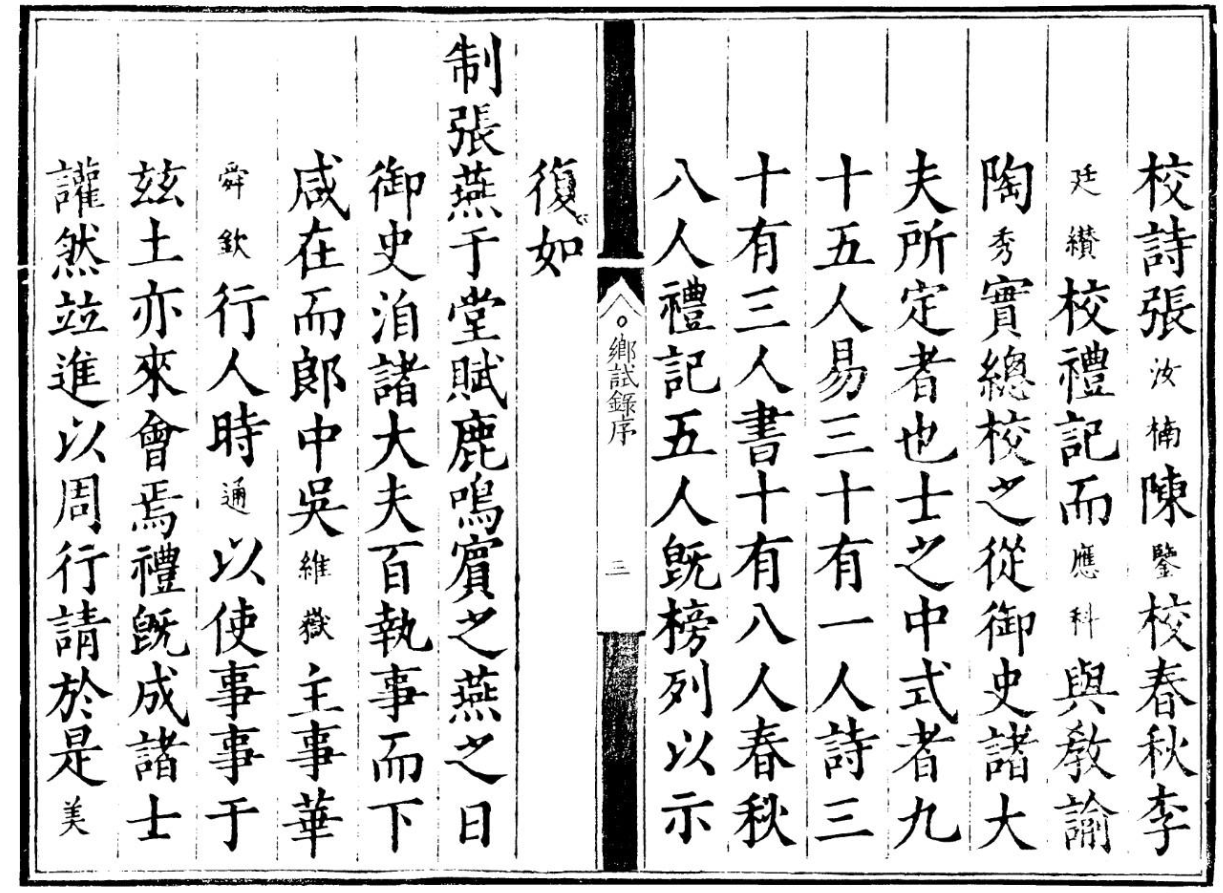 校詩張汝楠陳鑒校春秋李
廷纉校禮記而應科與教諭
陶秀實總校之從御史諸大
夫所定者也士之中式者九
十五人易三十有一人詩三
十有三人書十有八人春秋
八人禮記五人既榜列以示
鄉試錄序
三
復如
制張燕于堂賦鹿鳴賓之燕之日
御史洎諸大夫百執事而下
咸在而郎中吳維嶽主事華
舜欽行人時通以使事事于
茲土亦來會焉禮既成諸士
讙然竝進以周行請於是美